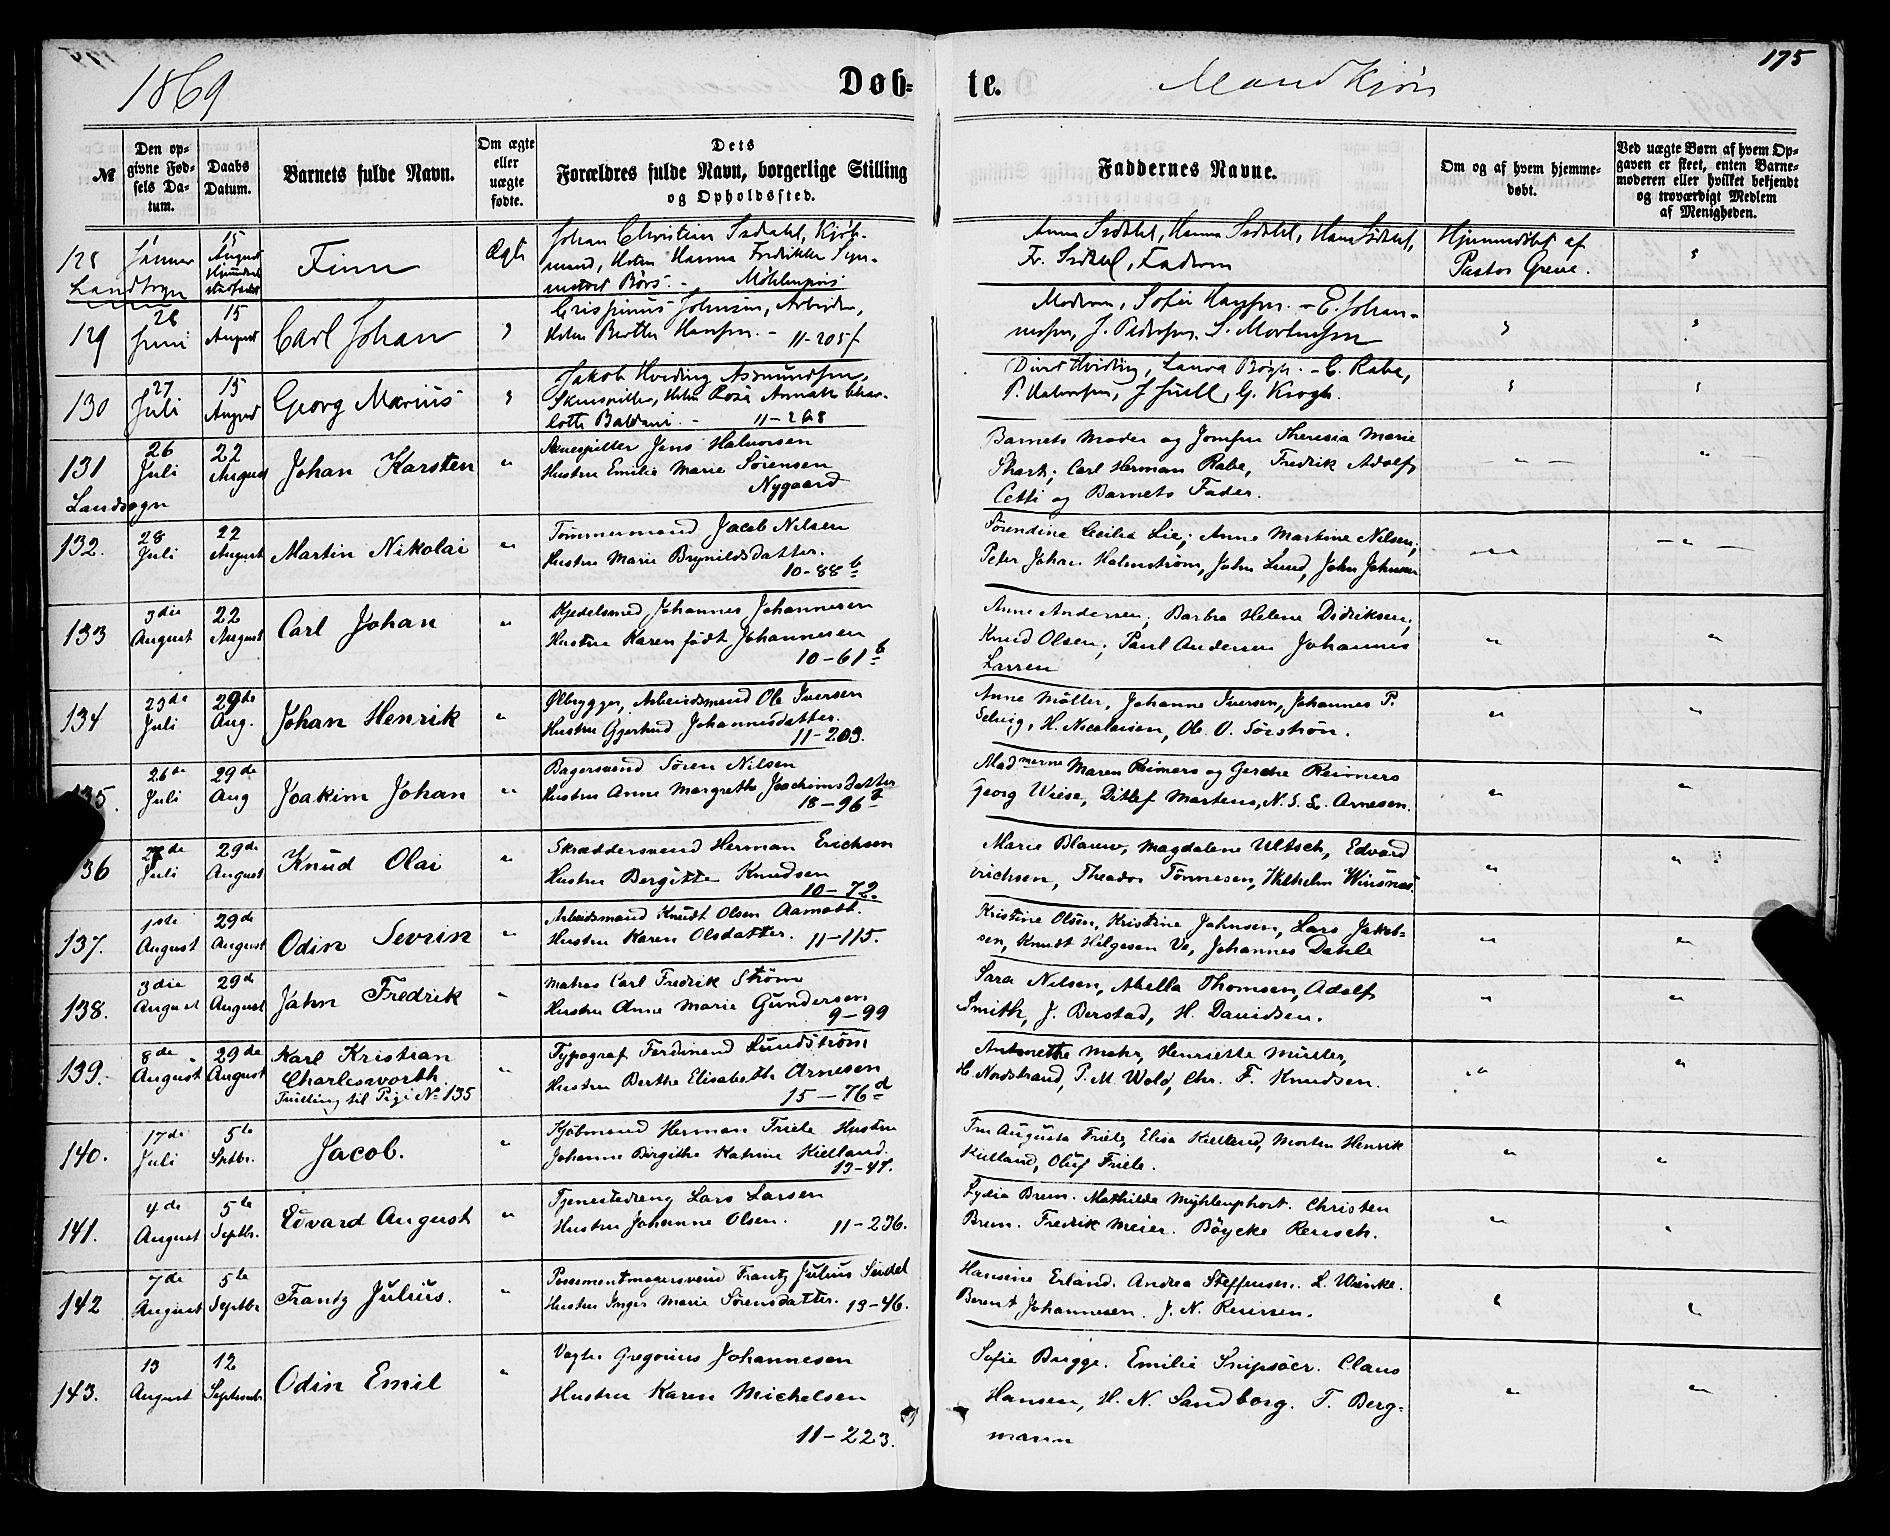 175
1869
Døb-
te.
Mandkjøn
№
Den op-
givne Fød-
sels Da-
tum.
Daabs
Datum.
Barnets fulde Navn.
Om ægte
eller
uægte
fødte.
Dets
Forældres fulde Navn, borgerlige Stilling
og Opholdssted.
Faddernes Navne.
Om og af hvem hjemme-
døbt.
Ved uægte Børn af hvem Op-
gaven er skeet, enten Barne-
moderen eller hvilket bekjendt
og troværdigt Medlem
af Menigheden.
128
Januar
15
August
Landsogn
Finn
Ægte
Johan Christian Kjøb-
mand, Hanna Fredrikke
Børs. - Möhlenpris
Anna Hanna
Fr. Faderen
Hjemmedöbt af
Pastor Greve.
129
28
Juni
15
August
Carl Johan
Crispinus Johnsen, Arbeider,
Berthe Hansen. - 11-205f
Moderen, Sofie Hansen. - E. Johan-
nesen, J. Pedersen, S. Mortensen
130
27
Juli
15
August
Georg Marius
Jakob Hviding Asmundsen,
Skuespiller, Rosa Char-
lotte - 11-268
Hviding, Laura Bögh. - C. Rabe,
J Juell, G. Krogh.
131
26
Juli
22
August
Landsogn
Johan Karsten
"
Skuespiller Jens Halvorsen
Hustru Emilie Marie Sörensen
Nygaard
Barnets Moder og Jomfru Theresia Marie
Carl Herman Rabe, Fredrik Adolf
Cetti og Barnets Fader.
132.
28
Juli
22
August
Martin Nikolai
"
Tömmermand Jacob Nilsen
Hustru Marie Brynildsdatter.
10-88 b
Sörendine Cecilia Lie; Anne Martine Nilsen;
Peter Johan Holmström, John Lund, John Johnsen
133
3die
August
22
August
Carl Johan
"
Kjedelsmed Johannes Johannesen
Hustru Karen födt Johannesen
10-61 b
Anne Andersen; Barbra Helene Didriksen;
Knud Olsen; Paul Andersen Johannes
Larsen
134
23de
Juli
29de
Aug.
Johan Henrik
"
Ölbrygger, Arbeidsmand Ole Iversen
Hustru Gjertrud Johannesdatter.
11-203.
Anne Möller, Johanne Iversen, Johannes P.
Selvig, H. Nicolaisen, Ole O. Söiström.
135.
26de
Juli
29de
Aug
Joakim Johan
"
Bagersvend Sören Nilsen
Hustru Anne Margrethe Joachimsdatter
18-96
Madmerne Maren Reimers og Gerche Reimers
Georg Wiese, Ditlef Martens, N. S. L. Arnesen.
136
Juli
29de
August
Knud Olai
"
Skræddersvend Herman Erichsen
Hustru Bergitte Knudsen
10-72.
Marie Blauw, Magdalene Ultsch, Edvard
Erichsen, Theodor Tönnesen, Wilhelm Winsnes
137.
1ste
August
29de
August
Odin Sevrin
"
Arbeidsmand Knudt Olsen Aamodt.
Hustru Karen Olsdatter. 11-115.
Kristine Olsen, Kristine Johnsen, Lars Jakob-
sen, Knudt Helgesen Ve, Johannes Dahle
138.
3die
August
29de
August
John Fredrik
"
Matros Carl Fredrik Ström
Hustru Anne Marie Gundersen
9-99
Sara Nilsen, Abella Thomsen, Adolf
Smith, J. Berstad, H. Davidsen.
139.
8de
August
29de
August
Karl Kristian
Charlesworth
Tvilling til Pige No 135
"
Typograf Ferdinand Lundström
Hustru Berthe Elisabeth Arnesen
15-76d
Antonette Mohr, Henriette Müller,
H. Nordstrand, P. M. Wold, Chr. F. Knudsen.
140.
17de
Juli
5te
Sptbr.
Jacob.
"
Kjöbmand Herman Friele Hustru
Johanne Birgithe Katrine Kielland.
13-47.
Fru Augusta Friele, Elisa Kielland, Morten Henrik
Kielland, Oluf Friele.
141.
4de
August
5te
Septbr.
Edvard August
"
Tjenestedreng Lars Larsen
Hustru Johanne Olsen. 11-236.
Lydia Brun. Mathilde Myhlenphort. Christen
Brun. Fredrik Meier. Böycke Reusch.
142
7de
August
5te
Septbr
Frantz Julius.
"
Possementmagersvend Frantz Julius Seidel
Hustru Inger Marie Sörensdatter. 13-46.
Hansine Erland. Andrea Steffensen. L. Wienke.
Berent Johannesen. J. N. Reiersen.
143.
13
August
12
September
Odin Emil
"
Vægter Gregorius Johannesen
Hustru Karen Michelsen
11-223.
Sofie Brygge. Emilie Snipsöer. Claus
Hansen, H. N. Sandborg. T. Berg-
mann